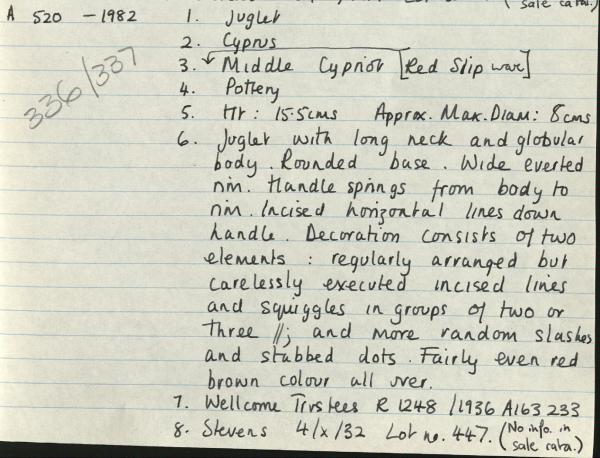 sale cata.)
A 520 - 1982 1. Juglet
2. Cyprus
336/337
3. Middle Cypriot [Red Slip ware]
4. Pottery
5. Ht: 15.5cms Approx. Max. Diam: 8cms
6. Juglet with long neck and globular
body. Rounded base. Wide everted
rim. Handle springs from body to
rim. Incised horizontal lines down
handle. Decoration consists of two
elements: regularly arranged but
carelessly executed incised lines
and squiggles in groups of two or
three //; and more random slashes
and stabbed dots. Fairly even red
brown colour all over.
7. Wellcome Trustees R 1248/1936 A163 233
8. Stevens 4/x/32 Lot no. 447. (No info. in
sale cata.)